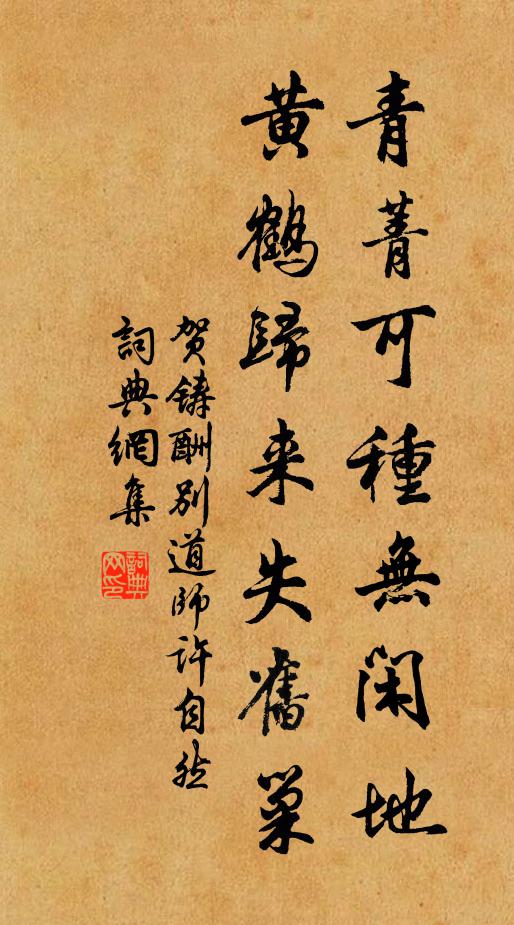 青菁可種無閑地
黃鶴歸来失舊巢
贺鑄酬别道師許自然
詞典網集
詞典网印